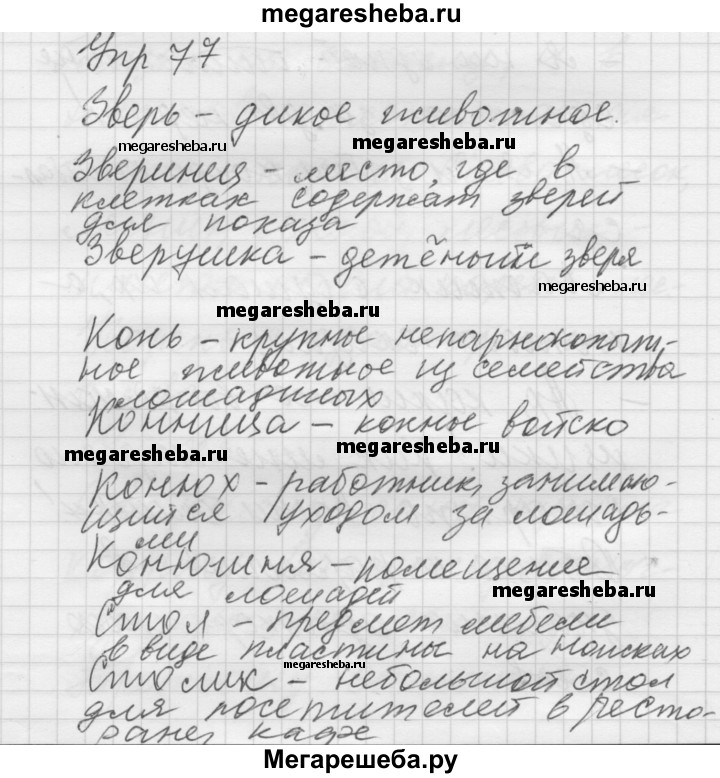 megaresheba.ru
Упр 77
Зверь - дикое животное.
megaresheba.ru
megaresheba.ru
Зверинец - место, где в
клетках содержат зверей
для показа
Зверушка - детёныш зверя
megaresheba.ru
megaresheba.ru
Конь - крупные непарнокопыт-
ное животное из семейства
лошадиных
Конница - конное войско
megaresheba.ru
megaresheba.ru
Конюх - работник, занимаю-
щийся уходом за лошадь-
ми
Конюшня - помещение
для лошадей
megaresheba.ru
Стол - предмет мебели
в виде пластины на ножках
megaresheba.ru
Столик - небольшой стол
для посетителей в ресто-
ране, кафе
Мегарешеба.ру